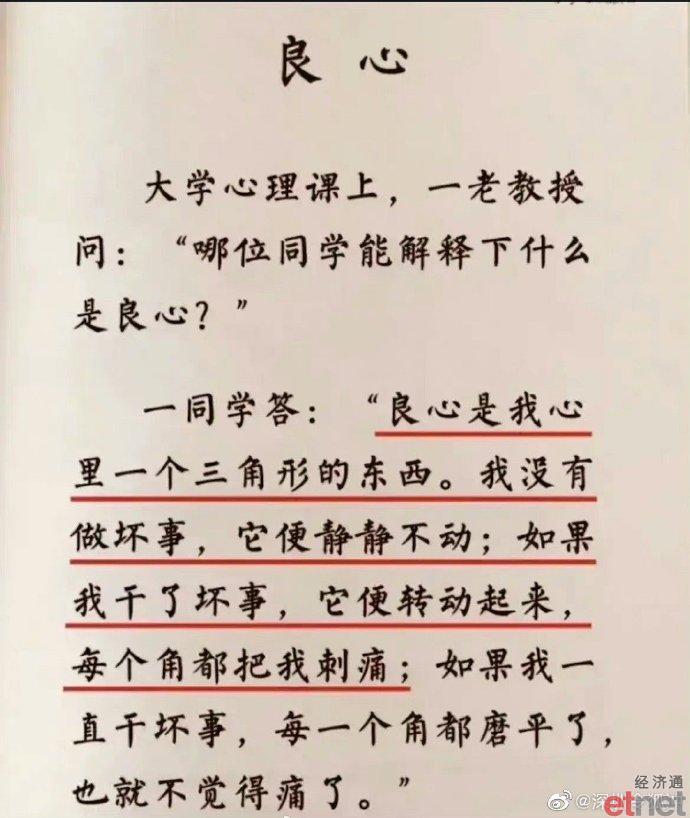 良心
大学心理课上，一老教授
问：“哪位同学能解释下什么
是良心？”
一同学答：“良心是我心
里一个三角形的东西。我没有
做坏事，它便静静不动；如果
我干了坏事，它便转动起来，
每个角都把我刺痛；如果我一
直干坏事，每一个角都磨平了，
也就不觉得痛了。”
经济通
etnet